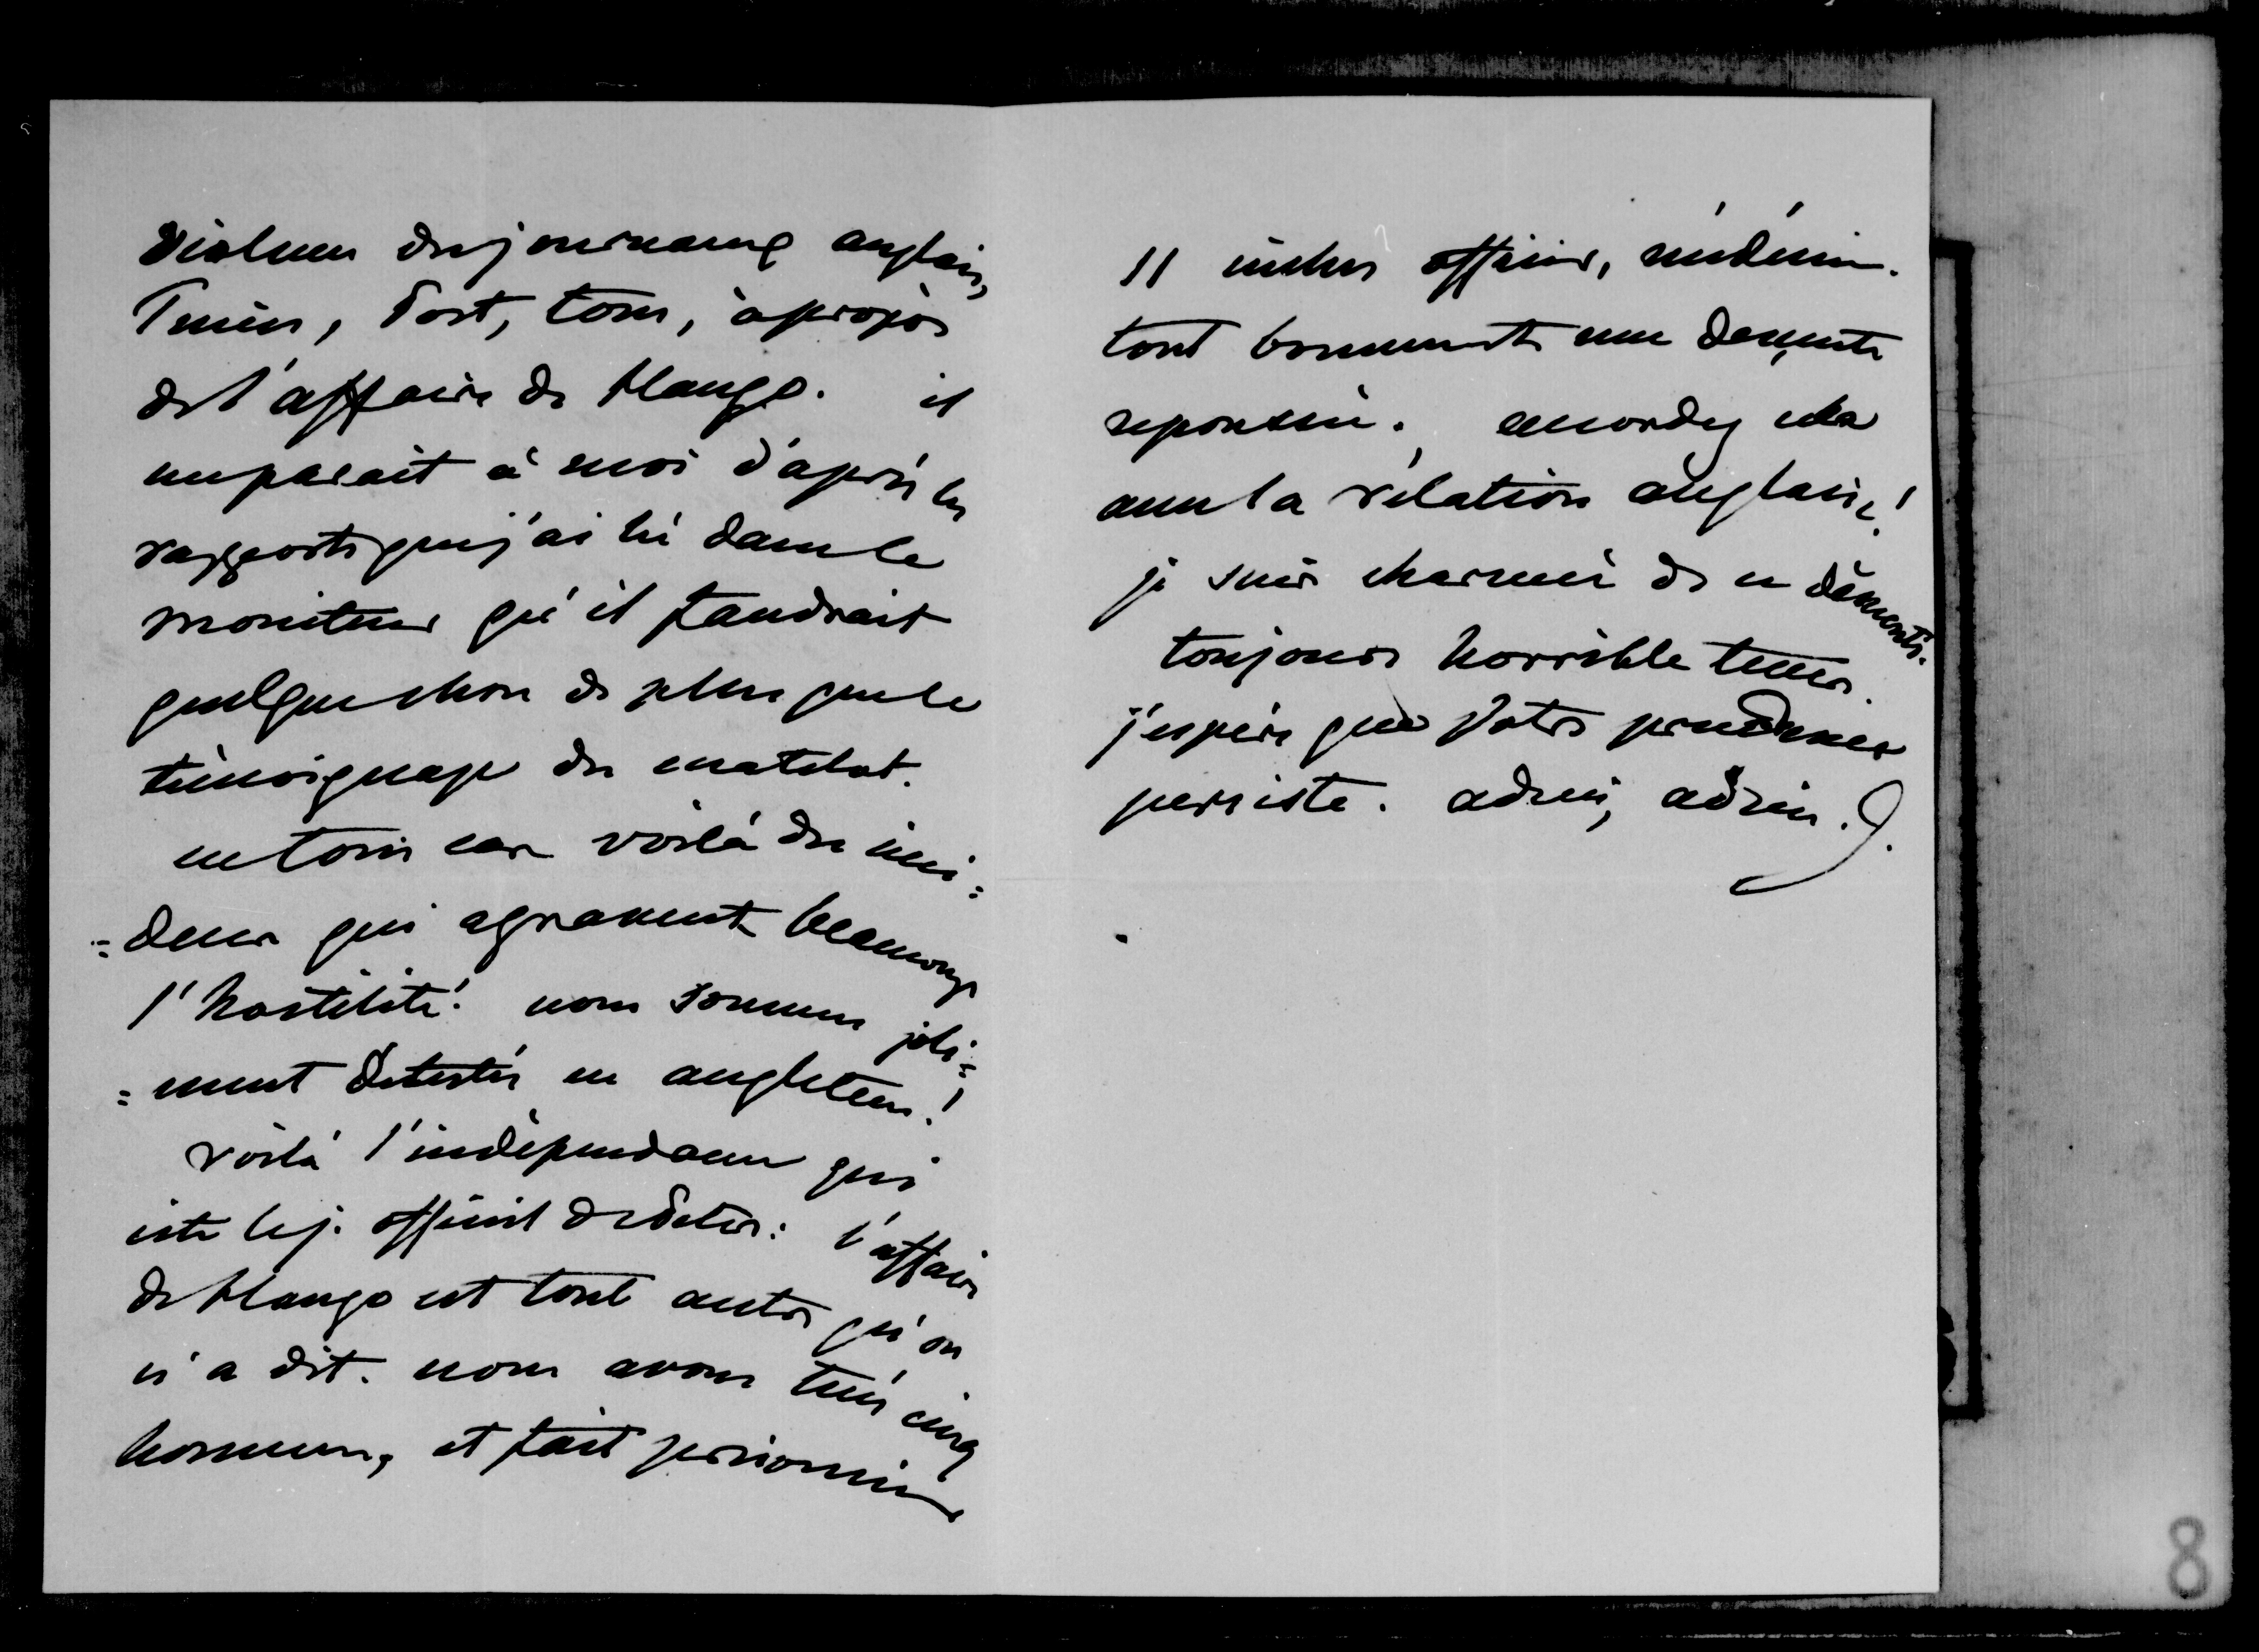 violence des journaux anglais,
Times, Post, tous, à propos
de l'affaire de Hango. il
me parait à moi d'après les
rapports que j'ai lû dans le
moniteur qu'il faudrait
quelque chose de plus que le
témoignage du matelot.
en tous cas voilà des inci=
=dens qui agravent beaucoup
l'hostilité! nous sommes joli=
=ment détestés en angleterre!
voilà l'indépendance qui
cite le j. officiel de : l'affaire
de Hango est tout autre qu'on
n'a dit. nous avons tués cinq
hommes, et fait prisonniers
11 inclus officier, médecin.
tout bonnement une descente
repoussée. accordez cela
avec la rélation anglaise!
je suis charmée de ce démenti.
toujours horrible tems.
j'espère que votre prudence
persiste. adieu, adieu.
8